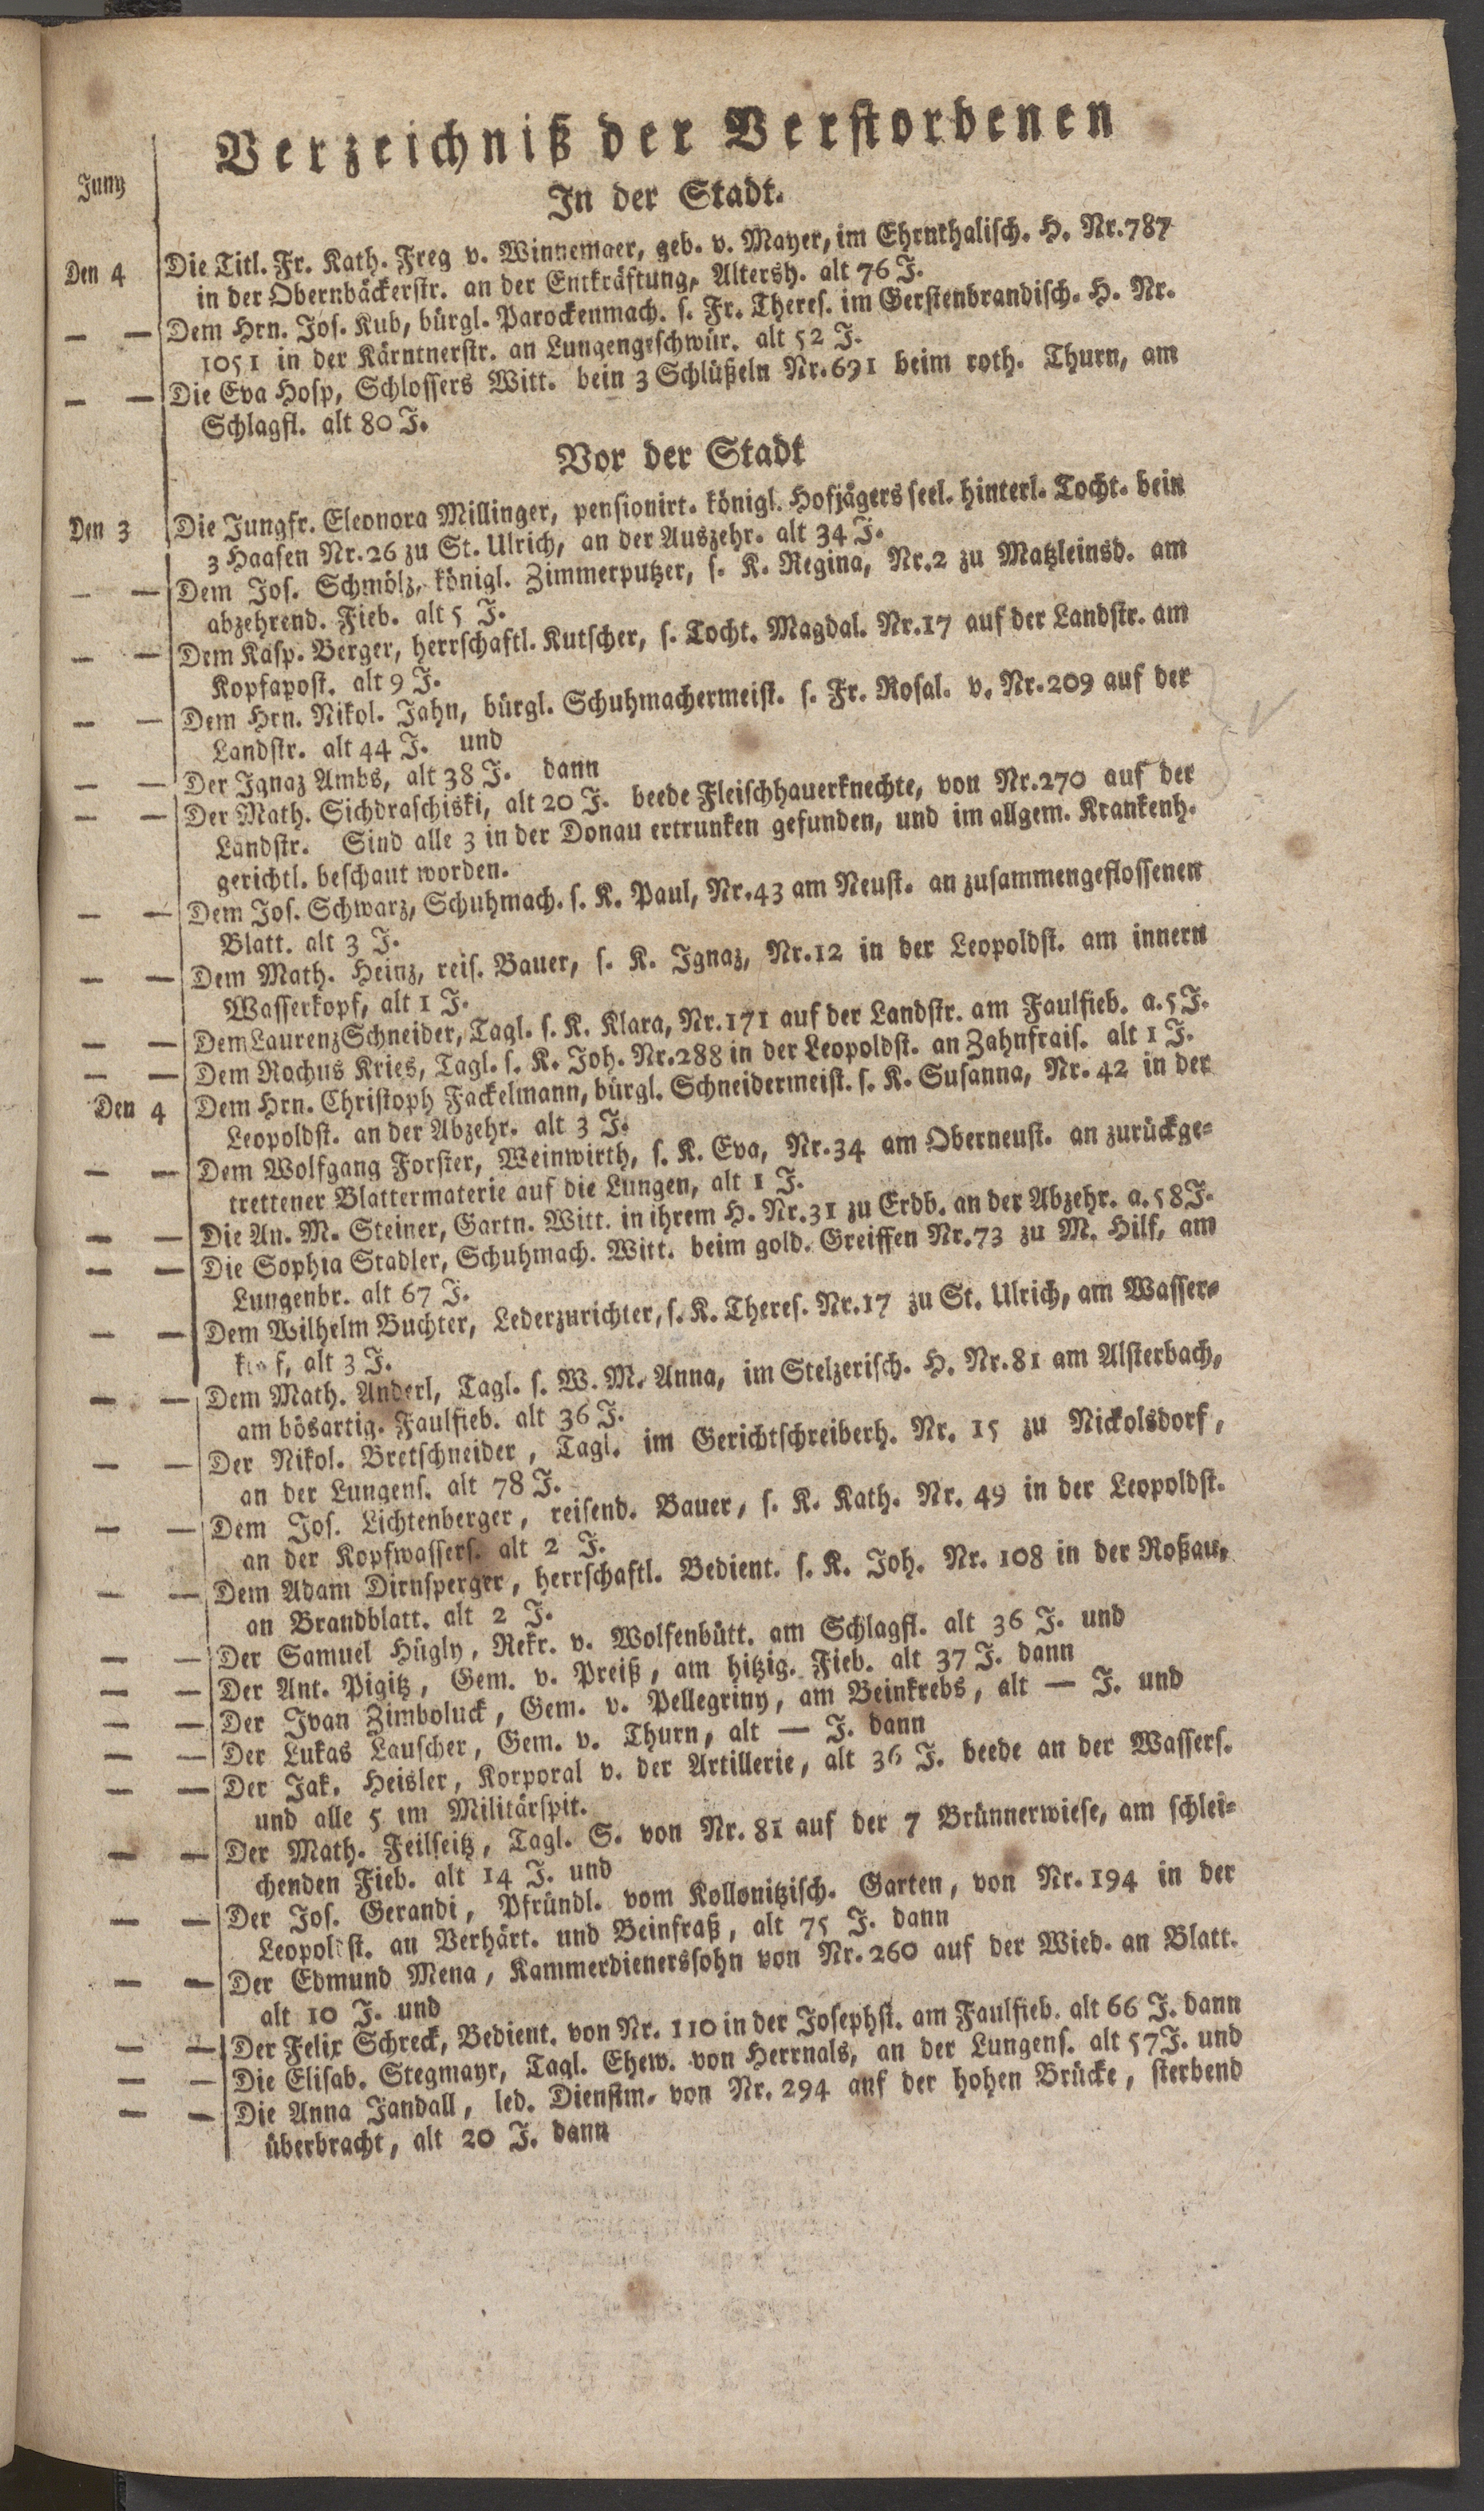 Verzeichniß der Verstorbenen
Juny
In der Stadt.
Den 4 Die Titl. Fr. Kath. Freg v. Winnemaer, geb. v. Mayer, im Ehrnthalisch. H. Nr. 787
in der Obernbäckerstr. an der Entkräftung, Altersh. alt 76 J.
— — Dem Hrn. Jos. Kub, bürgl. Parockenmach. s. Fr. Theres. im Gerstenbrandisch. H. Nr.
1051 in der Kärntnerstr. an Lungengeschwür. alt 52 J.
— — Die Eva Hosp, Schlossers Witt. bein 3 Schlüßeln Nr. 691 beim roth. Thurn, am
Schlagfl. alt 80 J.
Vor der Stadt
Den 3 Die Jungfr. Eleonora Millinger, pensionirt. königl. Hofjägers seel. hinterl. Tocht. bein
3 Haasen Nr. 26 zu St. Ulrich, an der Auszehr. alt 34 J.
— — Dem Jos. Schmölz, königl. Zimmerputzer, s. K. Regina, Nr. 2 zu Matzleinsd. am
abzehrend. Fieb. alt 5 J.
— — Dem Kasp. Berger, herrschaftl. Kutscher, s. Tocht. Magdal. Nr. 17 auf der Landstr. am
Kopfapost. alt 9 J.
— — Dem Hrn. Nikol. Jahn, bürgl. Schuhmachermeist. s. Fr. Rosal. v. Nr. 209 auf der
Landstr. alt 44 J. und
— — Der Ignaz Ambs, alt 38 J. dann
— — Der Math. Sichdraschiski, alt 20 J. beede Fleischhauerknechte, von Nr. 270 auf der
Landstr. Sind alle 3 in der Donau ertrunken gefunden, und im allgem. Krankenh.
gerichtl. beschaut worden.
— — Dem Jos. Schwarz, Schuhmach. s. K. Paul, Nr. 43 am Neust. an zusammengeflossenen
Blatt. alt 3 J.
— — Dem Math. Heinz, reis. Bauer, s. K. Ignaz, Nr. 12 in der Leopoldst. am innern
Wasserkopf, alt 1 J.
— — Dem Laurenz Schneider, Tagl. s. K. Klara, Nr. 171 auf der Landstr. am Faulfieb. a. 5 J.
— — Dem Rochus Kries, Tagl. s. K. Joh. Nr. 288 in der Leopoldst. an Zahnfrais. alt 1 J.
Den 4 Dem Hrn. Christoph Fackelmann, bürgl. Schneidermeist. s. K. Susanna, Nr. 42 in der
Leopoldst. an der Abzehr. alt 3 J.
— — Dem Wolfgang Forster, Weinwirth, s. K. Eva, Nr. 34 am Oberneust. an zurückge-
trettener Blattermaterie auf die Lungen, alt 1 J.
— — Die An. M. Steiner, Gartn. Witt. in ihrem H. Nr. 31 zu Erdb. an der Abzehr. a. 58 J.
— — Die Sophia Stadler, Schuhmach. Witt. beim gold. Greiffen Nr. 73 zu M. Hilf, am
Lungenbr. alt 67 J.
— — Dem Wilhelm Buchter, Lederzurichter, s. K. Theres. Nr. 17 zu St. Ulrich, am Wasser-
kopf, alt 3 J.
— — Dem Math. Anderl, Tagl. s. W. M. Anna, im Stelzerisch. H. Nr. 81 am Alsterbach,
am bösartig. Faulfieb. alt 36 J.
— — Der Nikol. Bretschneider, Tagl. im Gerichtschreiberh. Nr. 15 zu Nickolsdorf,
an der Lungens. alt 78 J.
— — Dem Jos. Lichtenberger, reisend. Bauer, s. K. Kath. Nr. 49 in der Leopoldst.
an der Kopfwassers. alt 2 J.
— — Dem Adam Dirnsperger, herrschaftl. Bedient. s. K. Joh. Nr. 108 in der Roßau,
an Brandblatt. alt 2 J.
— — Der Samuel Hügly, Rekr. v. Wolfenbütt. am Schlagfl. alt 36 J. und
— — Der Ant. Pigitz, Gem. v. Preiß, am hitzig. Fieb. alt 37 J. dann
— — Der Ivan Zimboluck, Gem. v. Pellegriny, am Beinkrebs, alt — J. und
— — Der Lukas Lauscher, Gem. v. Thurn, alt — J. dann
— — Der Jak. Heisler, Korporal v. der Artillerie, alt 36 J. beede an der Wassers.
und alle 5 im Militärspit.
— — Der Math. Feilseitz, Tagl. S. von Nr. 81 auf der 7 Brünnerwiese, am schlei-
chenden Fieb. alt 14 J. und
— — Der Jos. Gerandi, Pfründl. vom Kollonitzisch. Garten, von Nr. 194 in der
Leopoldst. an Verhärt. und Beinfraß, alt 75 J. dann
— — Der Edmund Mena, Kammerdienerssohn von Nr. 260 auf der Wied. an Blatt.
alt 10 J. und
— — Der Felix Schreck, Bedient. von Nr. 110 in der Josephst. am Faulfieb. alt 66 J. dann
— — Die Elisab. Stegmayr, Tagl. Ehew. von Herrnals, an der Lungens. alt 57 J. und
— — Die Anna Jandall, led. Dienstm. von Nr. 294 auf der hohen Brücke, sterbend
überbracht, alt 20 J. dann